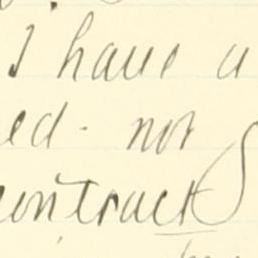 I have a
ed - not
contract